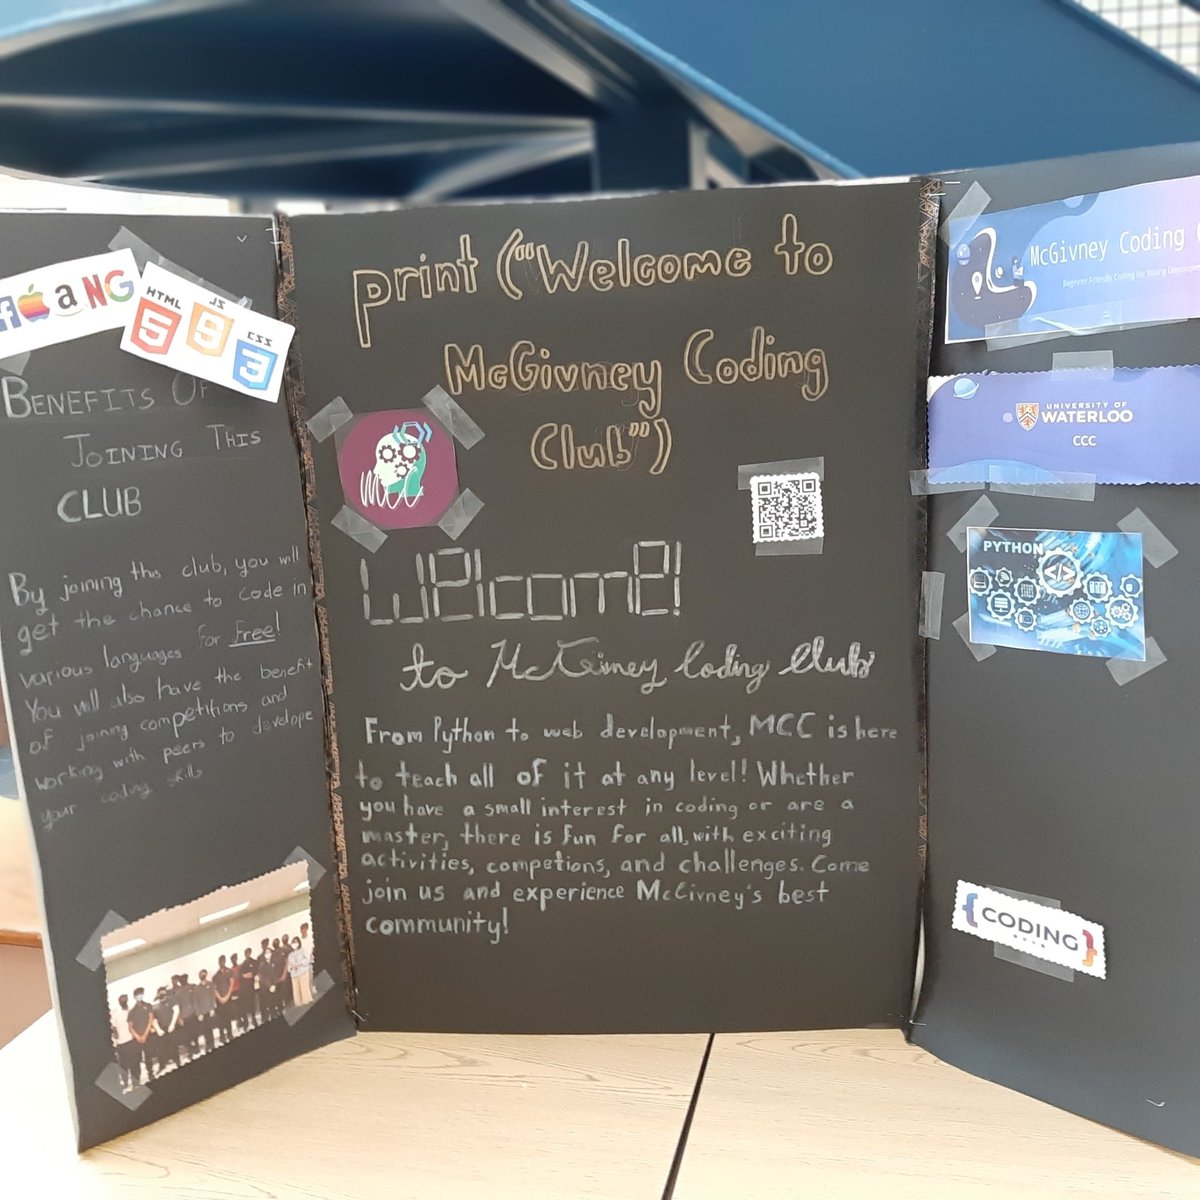 faaNG
HTML
5
JS
9
CSS
3
BENEFITS OF
JOINING THIS
CLUB
By joining this club, you will
get the chance to code in
various languages for Free!
You will also have the benefit
of joining competitions and
working with peers to develope
your coding skills
print ("Welcome to
McGivney Coding
Club")
mcc
Welcome!
to McGivney Coding Club
From Python to web development, MCC is here
to teach all of it at any level! Whether
you have a small interest in coding or are a
master, there is fun for all, with exciting
activities, competions, and challenges. Come
join us and experience McGivney's best
community!
McGivney Coding
Beginner Friendly Coding for Young Developers
UNIVERSITY OF
WATERLOO
CCC
PYTHON
</>
{CODING}